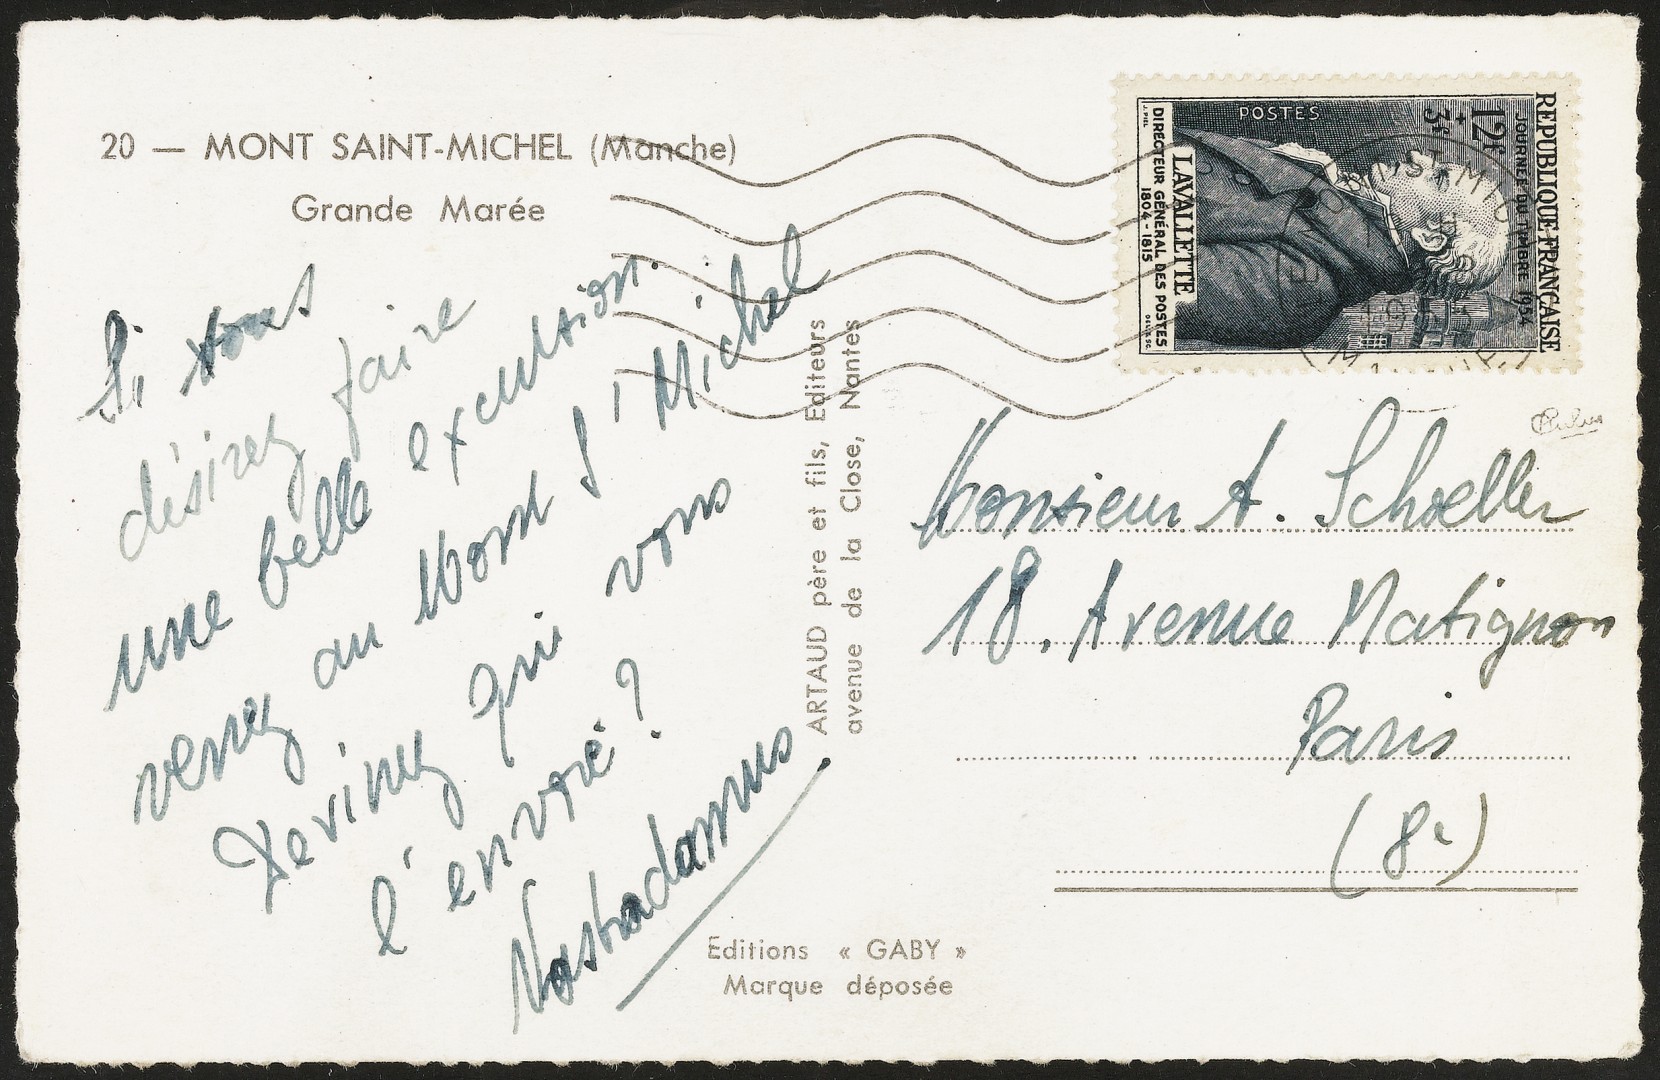 20 — MONT SAINT-MICHEL (Manche)
Grande Marée
Si vous
désirez faire
une belle excursion
venez au Mont St Michel
Devinez qui vous
l'envoie ?
Nostradamus
ARTAUD père et fils, Editeurs
avenue de la Close, Nantes
Editions « GABY »
Marque déposée
REPUBLIQUE FRANÇAISE
JOURNEE DU TIMBRE 1954
12f
+3f
POSTES
LAVALLETTE
DIRECTEUR GÉNÉRAL DES POSTES
1804-1815
Monsieur A. Schoeller
18, Avenue Matignon
Paris
(8e)